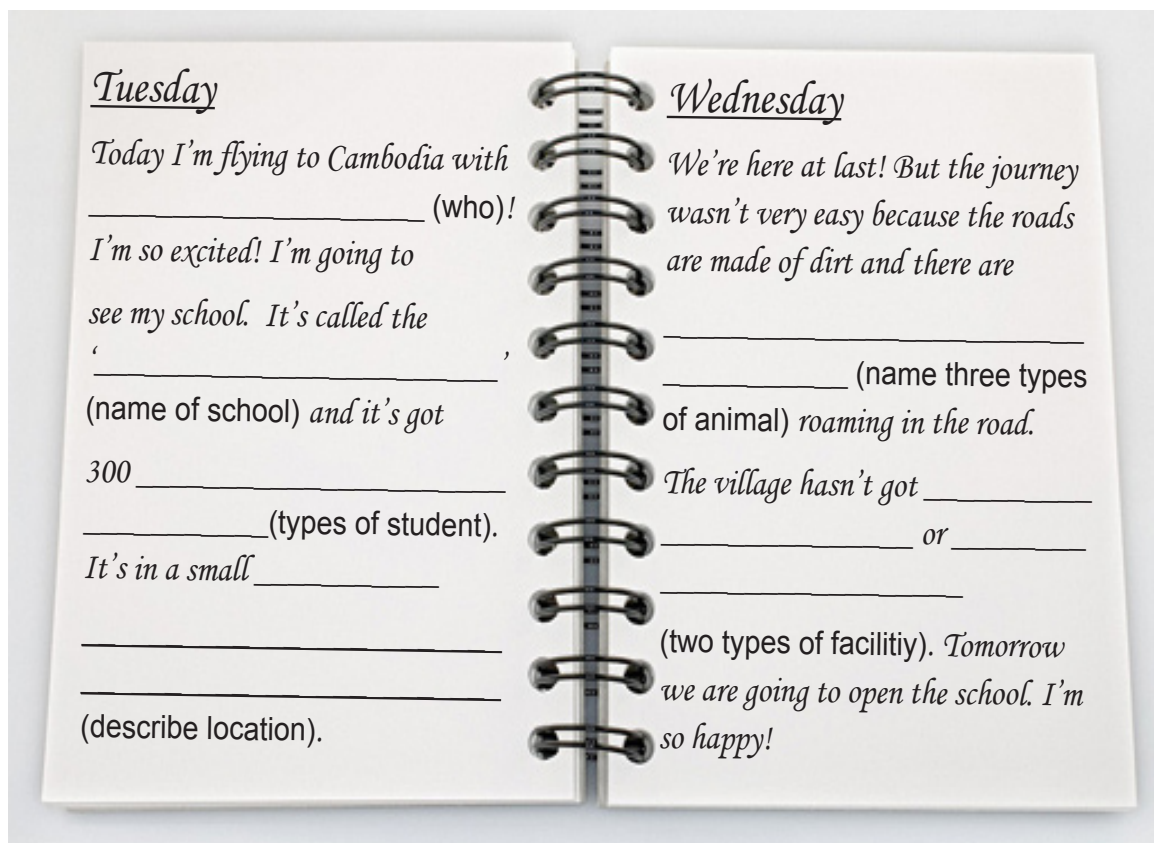 Tuesday
Today I'm flying to Cambodia with
____________________ (who)!
I'm so excited! I'm going to
see my school. It's called the
‘_________________________’
(name of school) and it's got
300 ______________________
___________(types of student).
It's in a small ___________
_________________________
_________________________
(describe location).
Wednesday
We're here at last! But the journey
wasn't very easy because the roads
are made of dirt and there are
_________________________
___________ (name three types
of animal) roaming in the road.
The village hasn't got __________
_______________ or ________
__________________
(two types of facilitiy). Tomorrow
we are going to open the school. I'm
so happy!